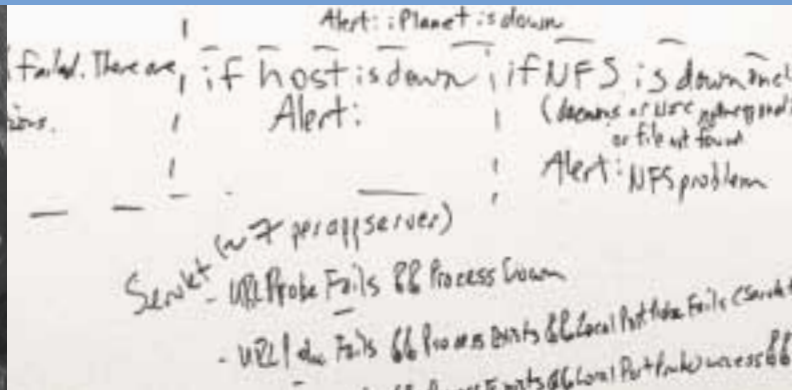 Alert: iPlanet is down
failed. There are
if host is down
if NFS is down
Alert:
or file not found
Alert: NFS problem
Servlet (~ 7 per app server)
- URL Probe Fails && Process Down
- URL Probe Fails && Process Exists && Local Port Probe Fails (Servlet
Process Exists && Local Port Probe) success &&